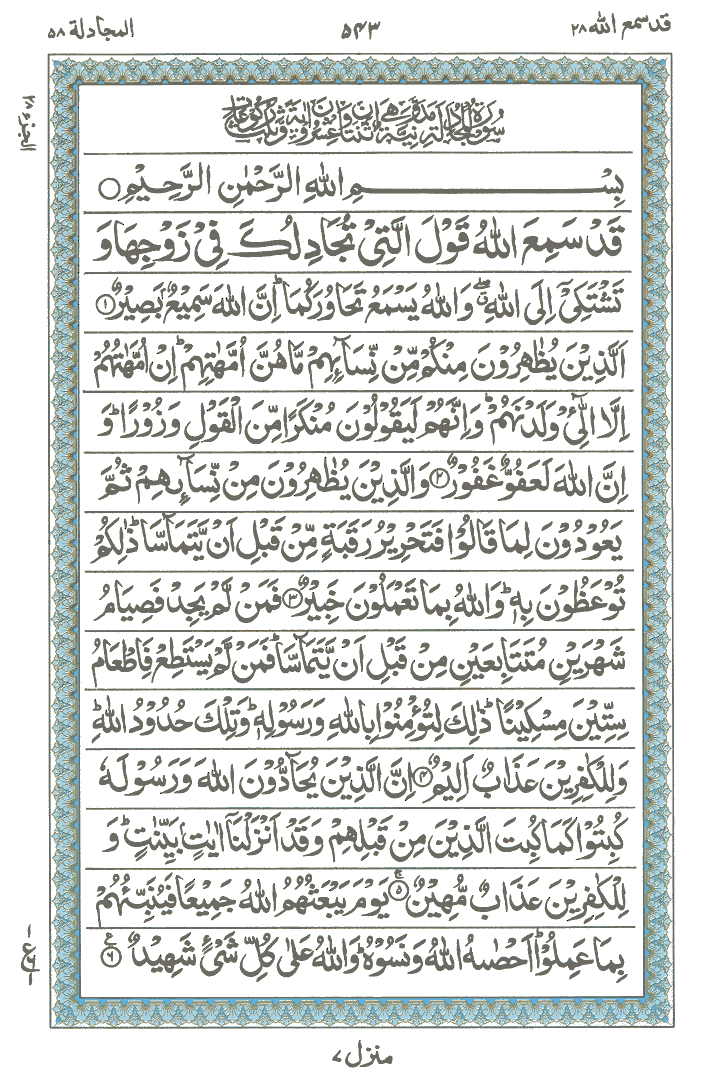 قد سمع الله ٢٨
٥٤٣
المجادلة ٥٨
الجزء ٢٨
سُوْرَةُ الْمُجَادَلَةِ مَدَنِيَّةٌ وَّهِيَ اثْنَتَانِ وَعِشْرُوْنَ اٰيَةً وَّثَلٰثُ رُكُوْعَاتٍ
بِسْمِ اللهِ الرَّحْمٰنِ الرَّحِيْمِ ○
قَدْ سَمِعَ اللهُ قَوْلَ الَّتِيْ تُجَادِلُكَ فِيْ زَوْجِهَا وَ
تَشْتَكِيْٓ اِلَى اللهِ ۖق وَاللهُ يَسْمَعُ تَحَاوُرَكُمَا ؕ اِنَّ اللهَ سَمِيْعٌۢ بَصِيْرٌ ۱
اَلَّذِيْنَ يُظٰهِرُوْنَ مِنْكُمْ مِّنْ نِّسَآئِهِمْ مَّا هُنَّ اُمَّهٰتِهِمْ ؕ اِنْ اُمَّهٰتُهُمْ
اِلَّا الّٰٓـِٔيْ وَلَدْنَهُمْ ؕ وَاِنَّهُمْ لَيَقُوْلُوْنَ مُنْكَرًا مِّنَ الْقَوْلِ وَزُوْرًا ؕ وَ
اِنَّ اللهَ لَعَفُوٌّ غَفُوْرٌ ۲ وَالَّذِيْنَ يُظٰهِرُوْنَ مِنْ نِّسَآئِهِمْ ثُمَّ
يَعُوْدُوْنَ لِمَا قَالُوْا فَتَحْرِيْرُ رَقَبَةٍ مِّنْ قَبْلِ اَنْ يَّتَمَآسَّا ؕ ذٰلِكُمْ
تُوْعَظُوْنَ بِهٖ ؕ وَاللهُ بِمَا تَعْمَلُوْنَ خَبِيْرٌ ۳ فَمَنْ لَّمْ يَجِدْ فَصِيَامُ
شَهْرَيْنِ مُتَتَابِعَيْنِ مِنْ قَبْلِ اَنْ يَّتَمَآسَّا ۚ فَمَنْ لَّمْ يَسْتَطِعْ فَاِطْعَامُ
سِتِّيْنَ مِسْكِيْنًا ؕ ذٰلِكَ لِتُؤْمِنُوْا بِاللهِ وَرَسُوْلِهٖ ؕ وَتِلْكَ حُدُوْدُ اللهِ ؕ
وَلِلْكٰفِرِيْنَ عَذَابٌ اَلِيْمٌ ۴ اِنَّ الَّذِيْنَ يُحَآدُّوْنَ اللهَ وَرَسُوْلَهٗ
كُبِتُوْا كَمَا كُبِتَ الَّذِيْنَ مِنْ قَبْلِهِمْ وَقَدْ اَنْزَلْنَآ اٰيٰتٍۢ بَيِّنٰتٍ ؕ وَ
لِلْكٰفِرِيْنَ عَذَابٌ مُّهِيْنٌ ۵ يَوْمَ يَبْعَثُهُمُ اللهُ جَمِيْعًا فَيُنَبِّئُهُمْ
بِمَا عَمِلُوْا ؕ اَحْصٰىهُ اللهُ وَنَسُوْهُ ؕ وَاللهُ عَلٰى كُلِّ شَيْءٍ شَهِيْدٌ ۶
منزل ۷